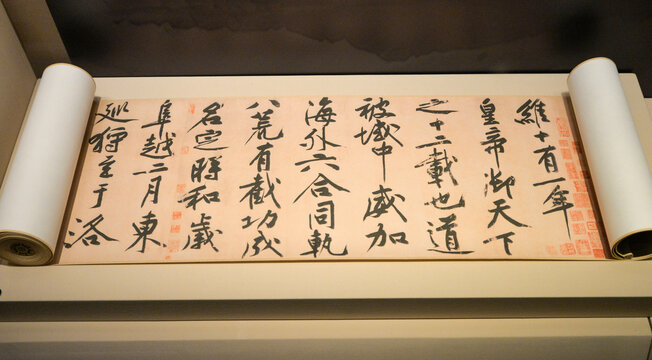 維十有一年
皇帝御天下
之十二載也道
被域中威加
海外六合同軌
八荒有截功成
名定時和歲
阜越二月東
巡狩至于洛